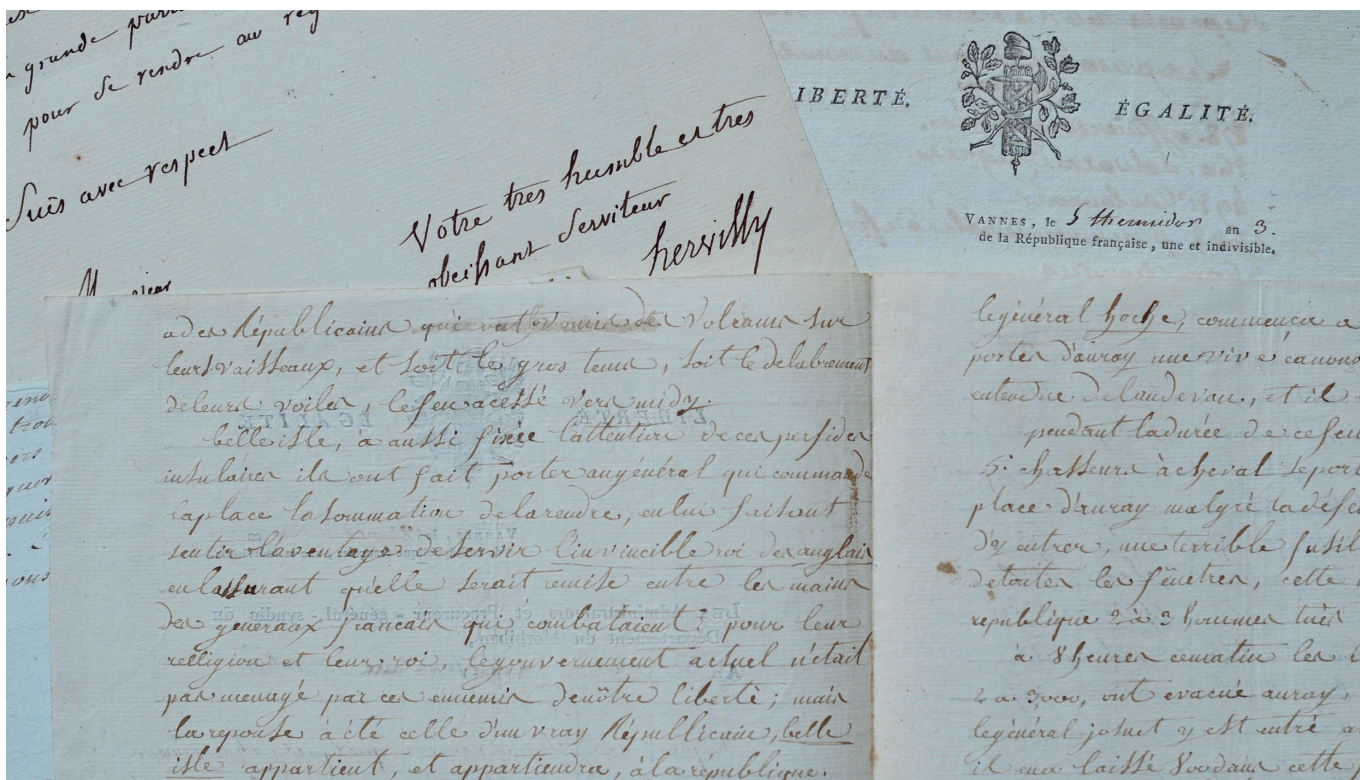 grande
pour se rendre au
Suis avec respect
Votre tres humble et tres
obeissant Serviteur
hervilly
IBERTÉ. ÉGALITÉ.
VANNES, le 5 thermidor an 3.
de la République française, une et indivisible.
ades Républicains qui des Volcans sur
leurs vaisseaux, et soit le gros tems, soit le delabrement
de leurs voiles, le feu a cessé vers midy.
belle isle, à aussi fixée l'attention de ces perfides
insulaires ils ont fait porter au général qui commande
la place la sommation de la rendre, en lui faisant
sentir l'aventage de servir l'invincible roi des anglais
en lassurant qu'elle serait remise entre les mains
des generaax francais qui combataient pour leur
relligion et leur roi, le gouvernement actuel n'était
pas menagé par ces ennemis de nôtre liberté; mais
la reponse à été celle d'un vray Républicain, belle
isle appartient, et appartiendra, à la république.
le général hoche, commenca a
portes d'auray une vive canon
entendue de landevan, et il
pendant la durée de ce feu
5e chasseurs à cheval se por
place d'auray malgré la défe
d'y entrer, une terrible fusil
de toutes les fenêtres, cette
republique 2 à 3 hommes tués
à 8 heures ce matin les
2 a 3000, ont evacué auray,
le général josnet y est entré a
il en a laissé 800 dans cette